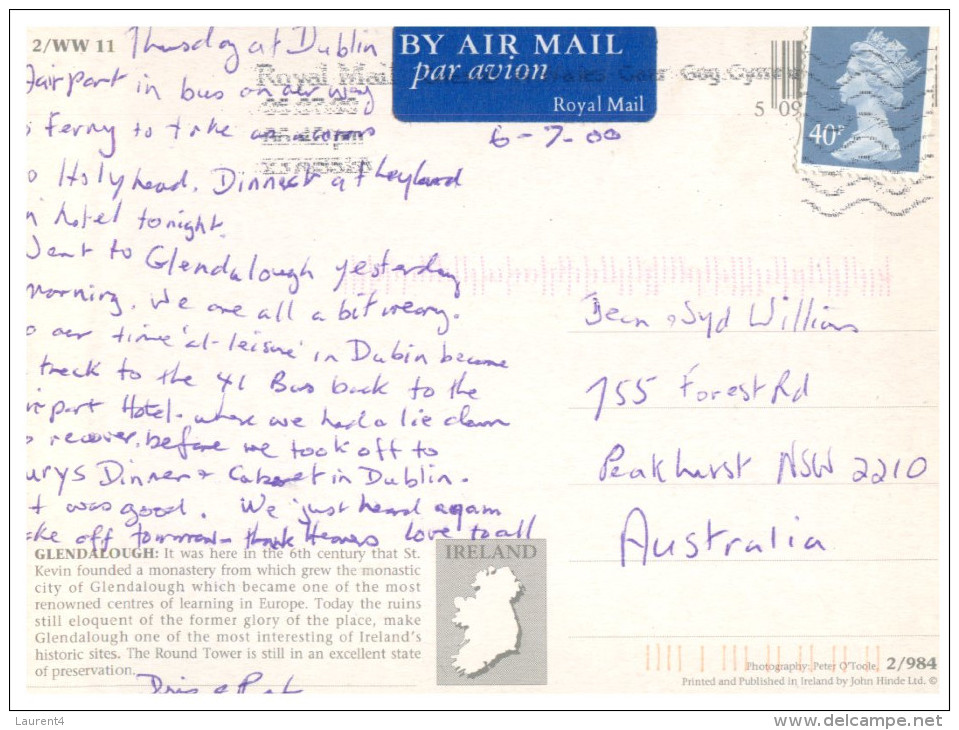 2/WW 11 Thursday at Dublin
airport in bus on our way
Ferry to take
Holyhead. Dinner at Leyland
hotel tonight.
to Glendalough yesterday
morning. We are all a bit weary.
our time 'at-leisure' in Dubin became
treck to the 41 Bus back to the
port Hotel - where we had a lie down
recover, before we took off to
urys Dinner + Cabaret in Dublin.
t was good. We just heard again
ke off tomorrow - thank Heavens love to all
BY AIR MAIL
par avion
Royal Mail
Royal Mail
6-7-00
5 09
40P
Jean & Syd Williams
755 Forest Rd
Peakhurst NSW 2210
Australia
GLENDALOUGH: It was here in the 6th century that St.
Kevin founded a monastery from which grew the monastic
city of Glendalough which became one of the most
renowned centres of learning in Europe. Today the ruins
still eloquent of the former glory of the place, make
Glendalough one of the most interesting of Ireland's
historic sites. The Round Tower is still in an excellent state
of preservation.
IRELAND
Pat
Photography: Peter O'Toole, 2/984
Printed and Published in Ireland by John Hinde Ltd. ©
Laurent4
www.delcampe.net